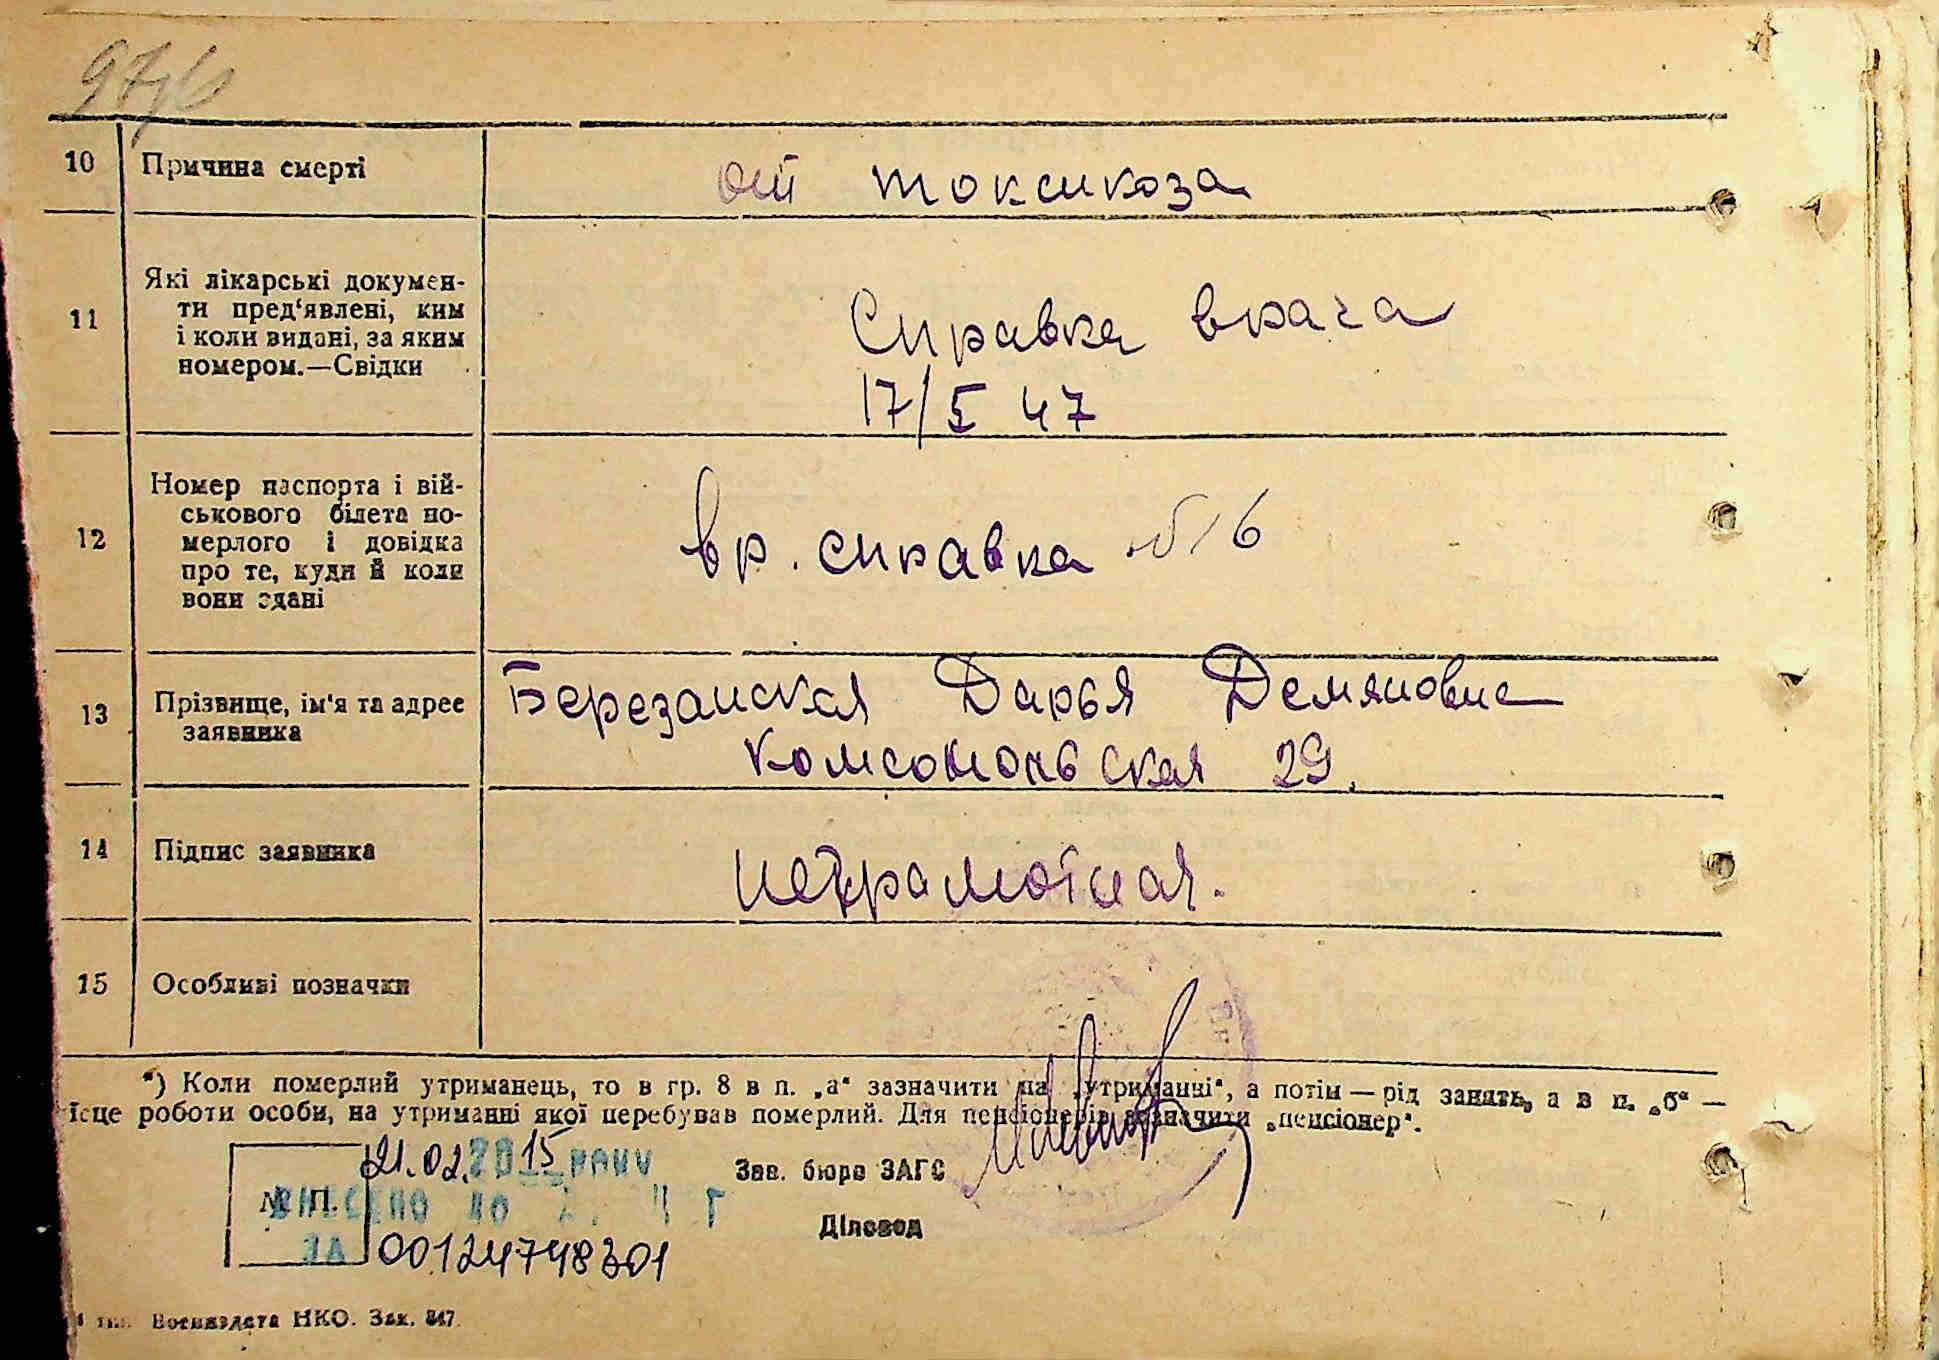 97/6
10 Причина смерті от токсикоза
11 Які лікарські докумен-
ти пред'явлені, ким
і коли видані, за яким
номером.—Свідки
Справка врача
17/I 47
12 Номер паспорта і вій-
ськового білета по-
мерлого і довідка
про те, куди й коли
вони здані
вр. справка №6
13 Прізвище, ім'я та адрес
заявника
Березанская Дарья Демяновна
Комсомольская 29.
14 Підпис заявника неграмотная.
15 Особливі позначки
*) Коли померлий утриманець, то в гр. 8 в п. „а“ зазначити „на утриманні“, а потім — рід занять, а в п. „б“ —
ісце роботи особи, на утриманні якої перебував померлий. Для пенсіонерів зазначити „пенсіонер“.
21.02.2015
М. П.
ВНЕСЕНО до
ЗА 00124748301
Зав. бюро ЗАГС
Діловод
тип. Воениздата НКО. Зак. 847.